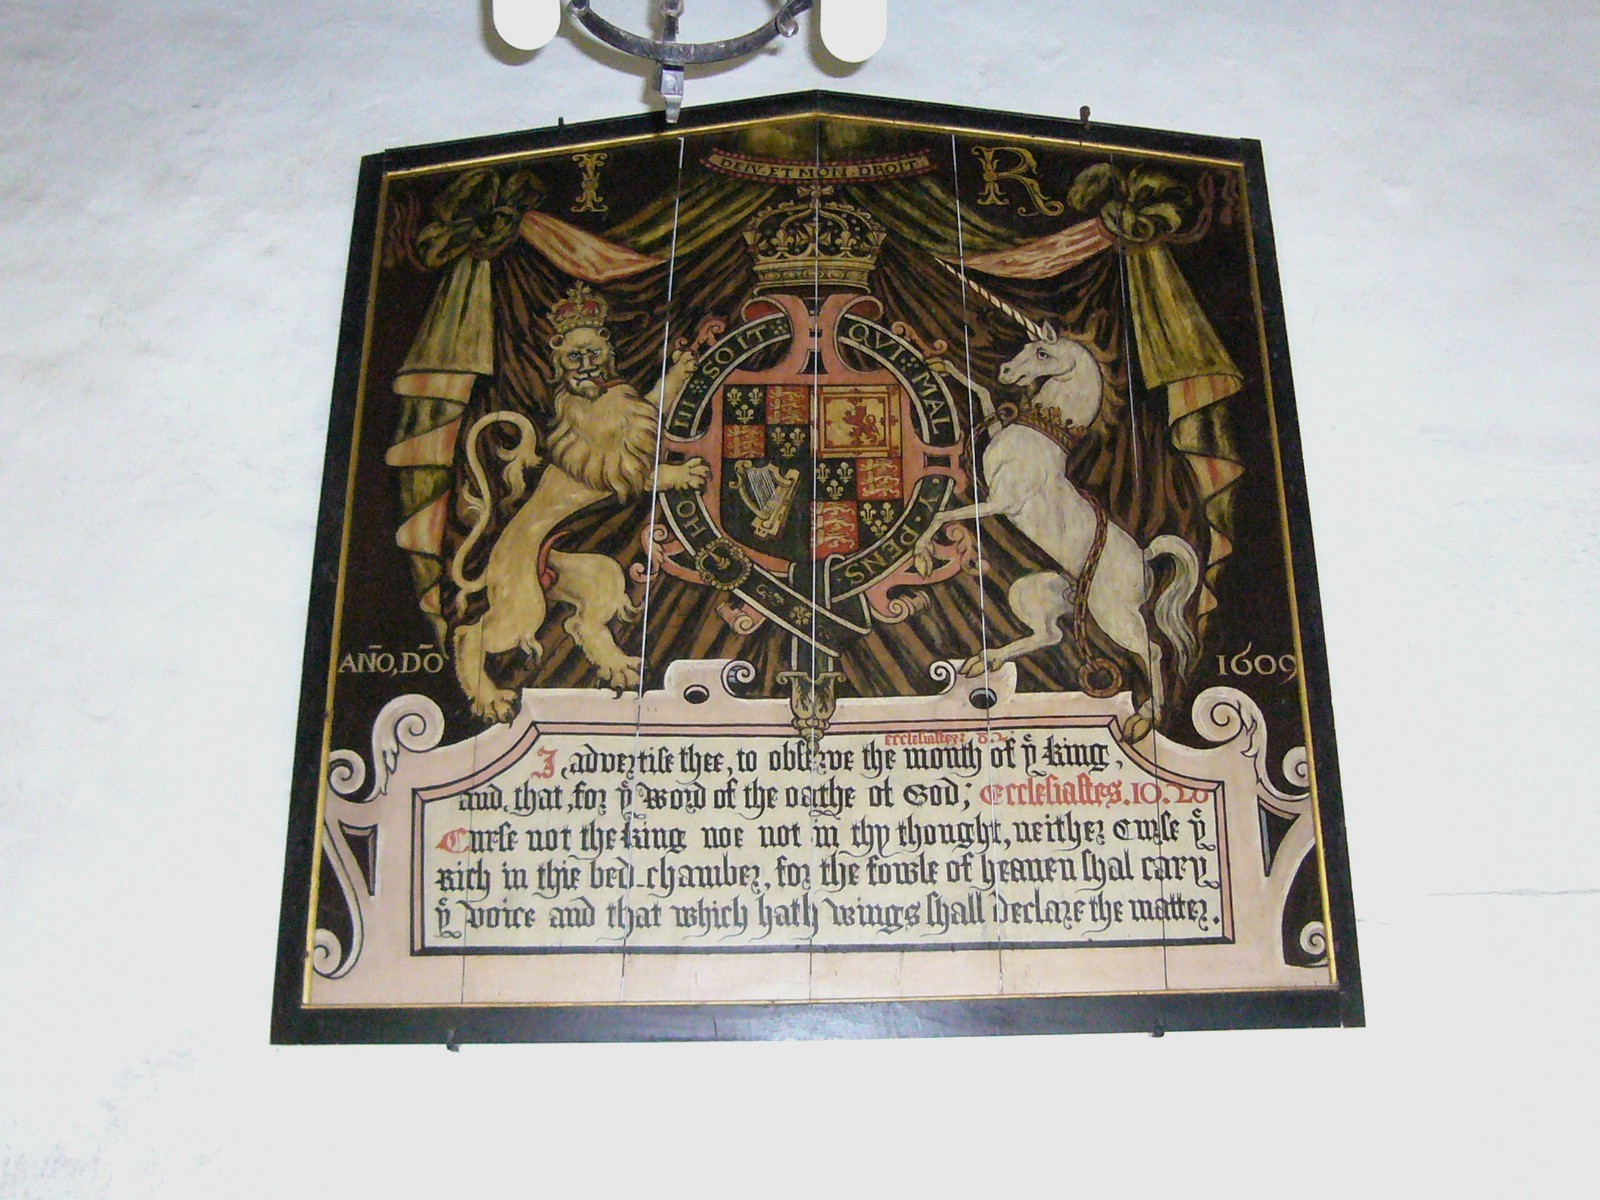 I R
DEIV·ET MON·DROIT
HONI : SOIT : QVI : MAL · Y · PENS
AÑO, DÕ 1609
ecclesiastes: 8.2
I advertise thee, to observe the mouth of yͤ king,
and that, for yͤ word of the oathe of God; Ecclesiastes. 10. 20
Curse not the king noe not in thy thought, neither curse yͤ
Rich in thie bed-chamber, for the fowle of heauen shal cary
yͤ voice and that which hath wings shall declare the matter.